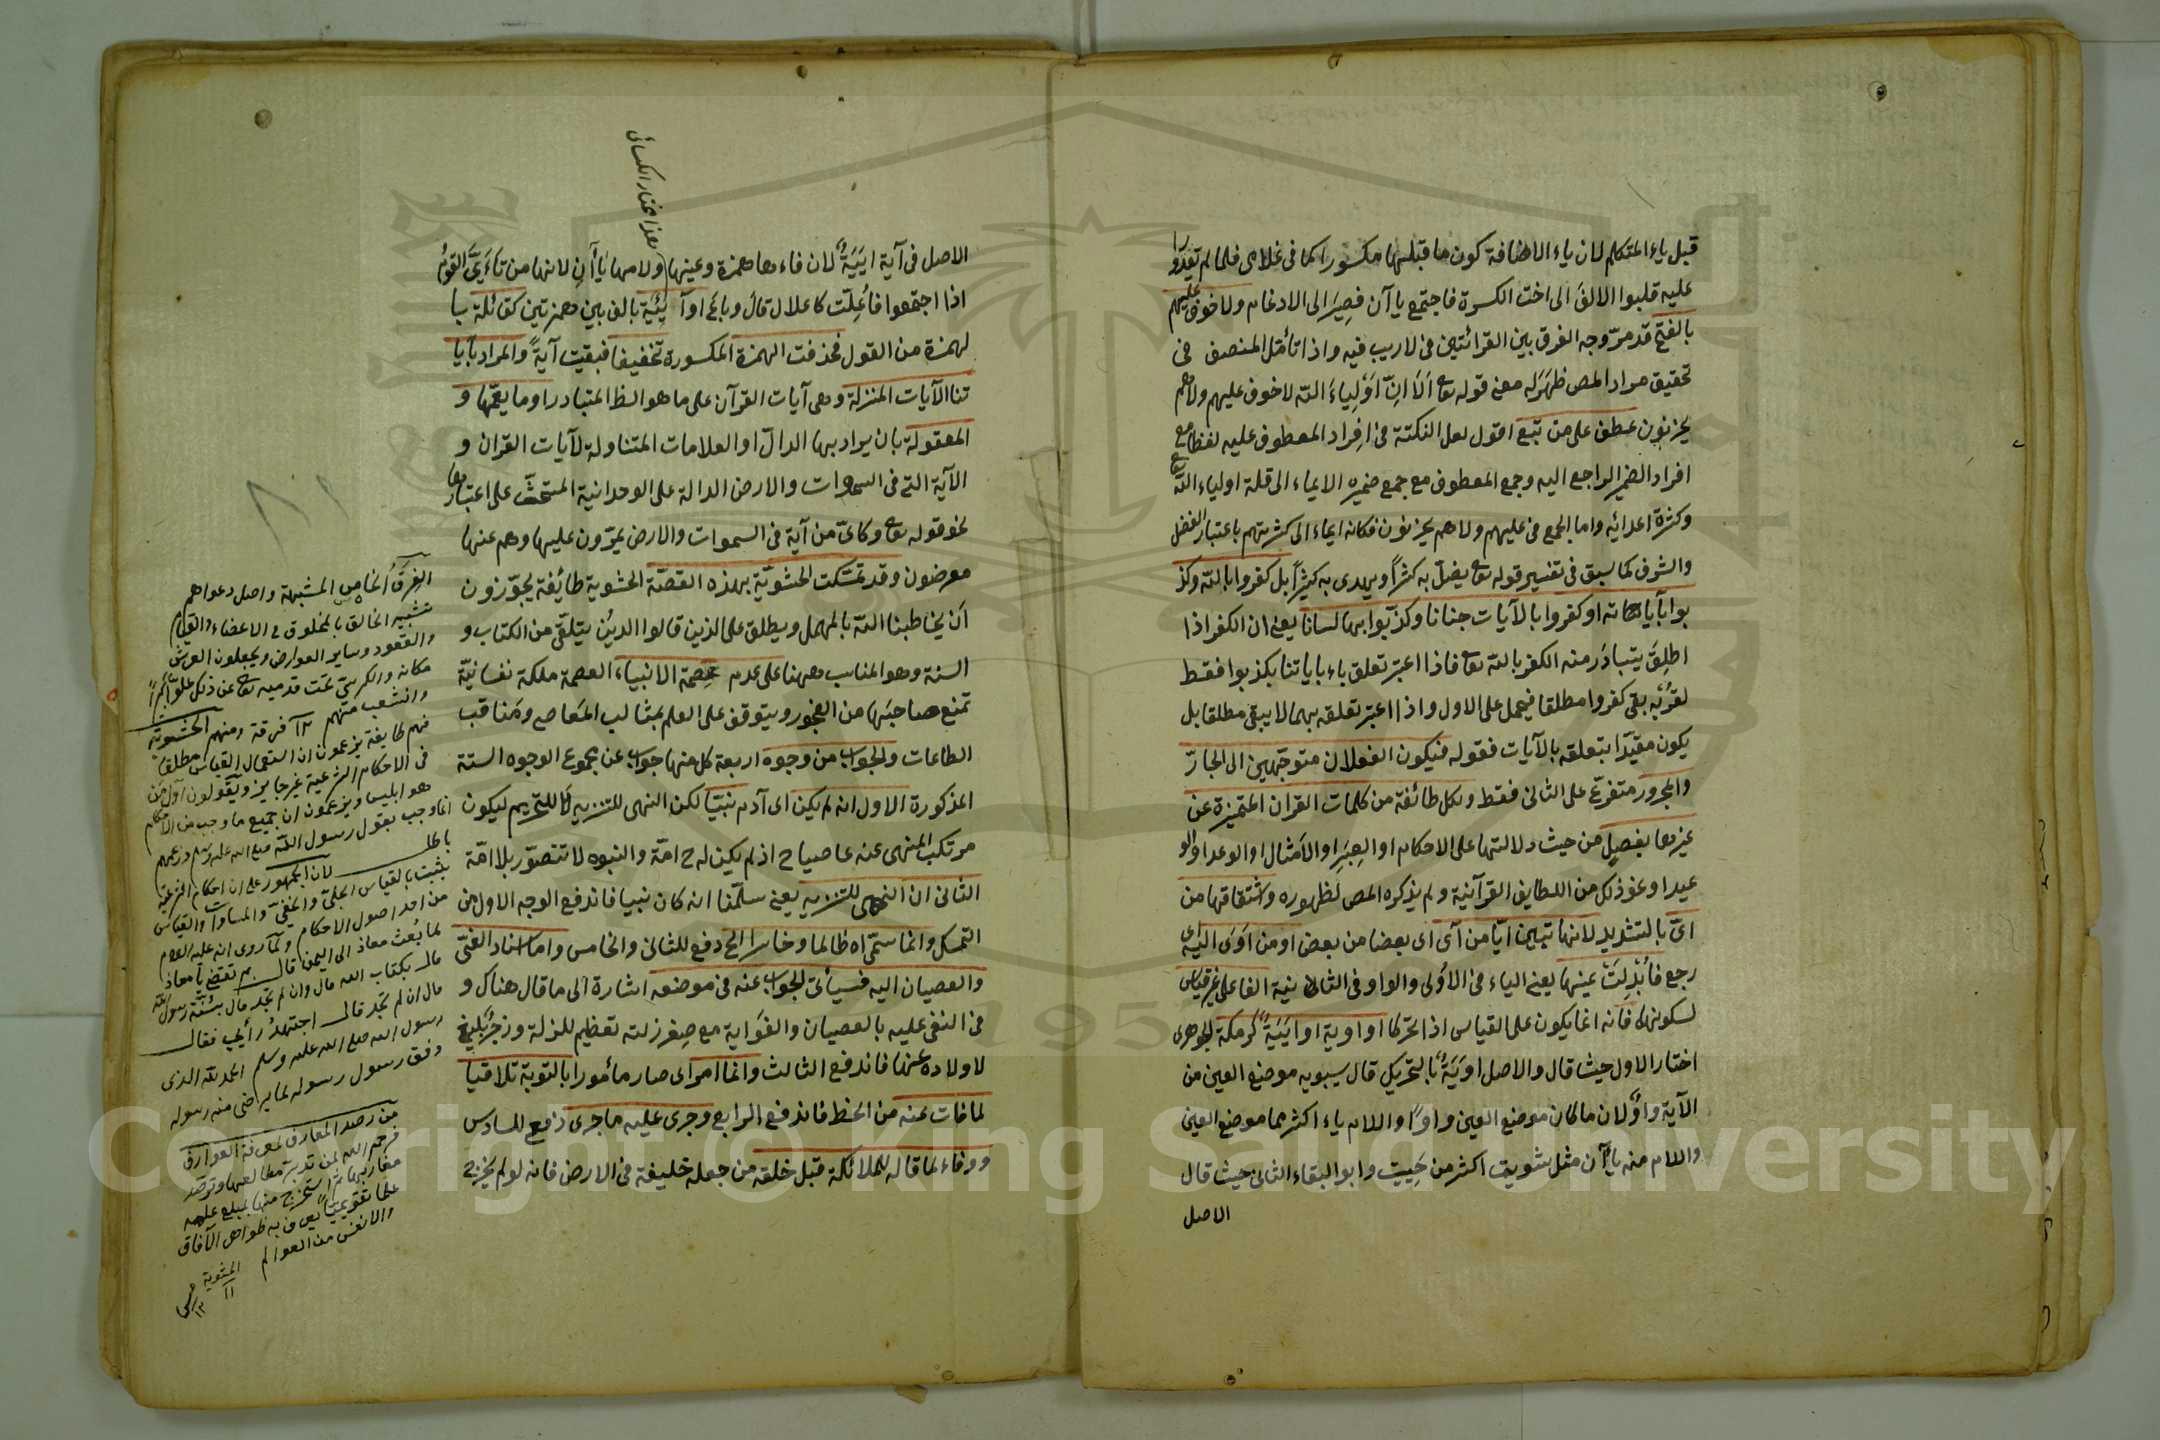 قبل ياء المتكلم لان ياء الاضافة كون ما قبلها مكسورا كما فى غلامى فلما لم تعدّوا
عليه قلبوا الالف الى اخت الكسرة فاجتمع ياآن فصير الى الادغام ولا خوف عليهم
بالفتح قد مرّ وجه الفرق بين القرائتين فى لا ريب فيه واذا تأمّل المنصف فى
تحقيق مراد المص ظهر له معنى قوله تع الا انّ اولياء الله لا خوف عليهم ولا هم
يحزنون عطف على من تبع اقول لعل النكتة فى افراد المعطوف عليه لفظا مع
افراد الضمير الراجع اليه وجمع المعطوف مع جمع ضميره الايماء الى قلة اولياء الله تع
وكثرة اعدائه واما الجمع فى عليهم ولا هم يحزنون فكانه ايماء الى كثرتهم باعتبار الفضل
والشرف كما سبق فى تفسير قوله تع يضلّ به كثيرًا ويهدى به كثيرًا بل كفروا بالله وكذ
بوا بآياته او كفروا بالآيات جنانا وكذّبوا بها لسانا يعنى ان الكفر اذا
اطلق يتبادر منه الكفر بالله تع فاذا اعتبر تعلق باء باياتنا بكذبوا فقط
لقربه بقى كفروا مطلقا فيحمل على الاول واذا اعتبر تعلقه بهما لا يبقى مطلقا بل
يكون مقيّدا بتعلقه بالآيات فقوله فيكون الفعلان متوجّهين الى الجارّ
والمجرور متفرّع على الثانى فقط ولكل طائفة من كلمات القران المتميزة عن
غيرها بفصل من حيث دلالتها على الاحكام او العبر او الامثال او الوعد او الو
عيد او نحو ذلك من اللطايف القرآنية ولم يذكره المص لظهوره واشتقاقها من
اىّ بالتشديد لانها تبين ايّا من آى اى بعضا من بعض او من اوى اليه اى
رجع فابدلت عينها يعنى الياء فى الاولى والواو فى الثانية الفا على غير قياس
لسكونها فانه انما يكون على القياس اذا تحركا او اوية او اييةٌ كرمكة الجوهرى
اختار الاول حيث قال والاصل اوية بالتحريك قال سيبويه موضع العين من
الآية واو لان ما كان موضع العين واوا واللام ياء اكثر مما موضع العين
واللام منه ياآن مثل شويت اكثر من حييت وابو البقاء الثانى حيث قال
الاصل
هذا مختار الكسائى
الاصل فى آية اييةٌ لان فاءها همزة وعينها ولامها ياآن لانها من تأيّى القوم
اذا اجتمعوا فاعلّت كاعلال قال وباع او آئية بالف بين همزتين كقائلة با
لهمزة من القول فحذفت الهمزة المكسورة تخفيفا فبقيت آية والمراد بآيا
تنا الآيات المنزلة وهى آيات القرآن على ما هو الظ المتبادر او ما يعمّها و
المعقولة بان يراد بها الدالّ او العلامات المتناولة لآيات القران و
الآية التى فى السموات والارض الدالة على الوحدانية المستحثّ على اعتبارها
نحو قوله تع وكايّ من آية فى السموات والارض يمرّون عليها وهم عنها
معرضون وقد تمسّكت الحشويّة بهذه القصّة الحشوية طائفة يجوّزون
ان يخاطبنا الله بالمهمل ويطلق على الذين قالوا الدين يتلقى من الكتاب و
السنة وهو المناسب ههنا على عدم عصمة الانبياء العصمة ملكة نفسانيّة
تمنع صاحبها من الفجور ويتوقف على العلم بمثالب المعاصى ومناقب
الطاعات والجواب من وجوه اربعة كل منها جواب عن مجموع الوجوه الستة
المذكورة الاول انه لم يكن اى آدم نبيّا لكن النهى للتنزيه لا للتحريم ليكون
مرتكب المنهى عنه عاصيا ح اذ لم يكن له ح امّة والنبوه لا تتصوّر بلا امّة
الثانى ان النهى للتنزيه يعنى سلّمنا انه كان نبيا فاندفع الوجه الاول من
التمسك وانما سمّى اه ظالما وخاسرا الخ دفع للثانى والخامس واما اسناد الغىّ
والعصيان اليه فسيأتى الجواب عنه فى موضعه اشارة الى ما قال هناك و
فى النفى عليه بالعصيان والغواية مع صغر زلته تعظيم للزلة وزجر بليغ
لاولاده عنها فاندفع الثالث وانما امر اى صار مأمورا بالتوبة تلافيا
لما فات عنه من الحظ فاندفع الرابع وجرى عليه ما جرى دفع للسادس
ووفاء لما قاله للملائكة قبل خلقه من جعله خليفة فى الارض فانه لو لم يخرج
الفرق الخامس المشبهة واصل دعواهم
تشبيه الخالق بالمخلوق فى الاعضاء والقيام
والقعود وساير العوارض ويجعلون العرش
مكانه والكرسىّ تحت قدميه تع عن ذلك علوّا كبيرًا
وانشعب منهم ١٣ فرقة ومنهم الحشوية
فهم طايفة يزعمون ان استعمال القياس مطلقا
فى الاحكام الشرعية غير جايز ويقولون اول من
هو ابليس ويزعمون ان جميع ما وجب من الاحكام
انما وجب بقول رسول الله صلى الله عليه وسلم وزعمهم
باطل لان الجمهور على ان احكام الشرعية
يثبت بالقياس الجلىّ والخفىّ والمساوا والقياس
من احد اصول الاحكام ولما روى انه عليه السلام
لما بعث معاذ الى اليمن قال بم تقضى يا معاذ
قال بكتاب الله قال وان لم تجد قال بسنّة رسول الله
قال ان لم تجد قال اجتهد رأيى فقال
رسول الله صلى الله عليه وسلم الحمد لله الذى
وفق رسول رسوله لما يرضى منه رسوله
من رصد المعارف لمعرفة العوارف
فرحم الله لمن تدبّر مطالعها وترصّد
مغاربها ثم استخرج منها بمبلغ علمه
علما تقويميّا يعرف به ظواهر الآفاق
والانفس من العوالم
Copyright © King Saud University
1957